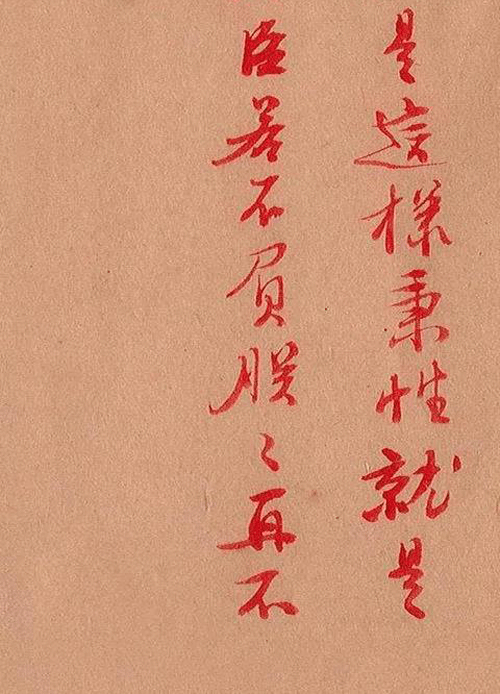 是這樣秉性就是
臣若不負朕〻再不